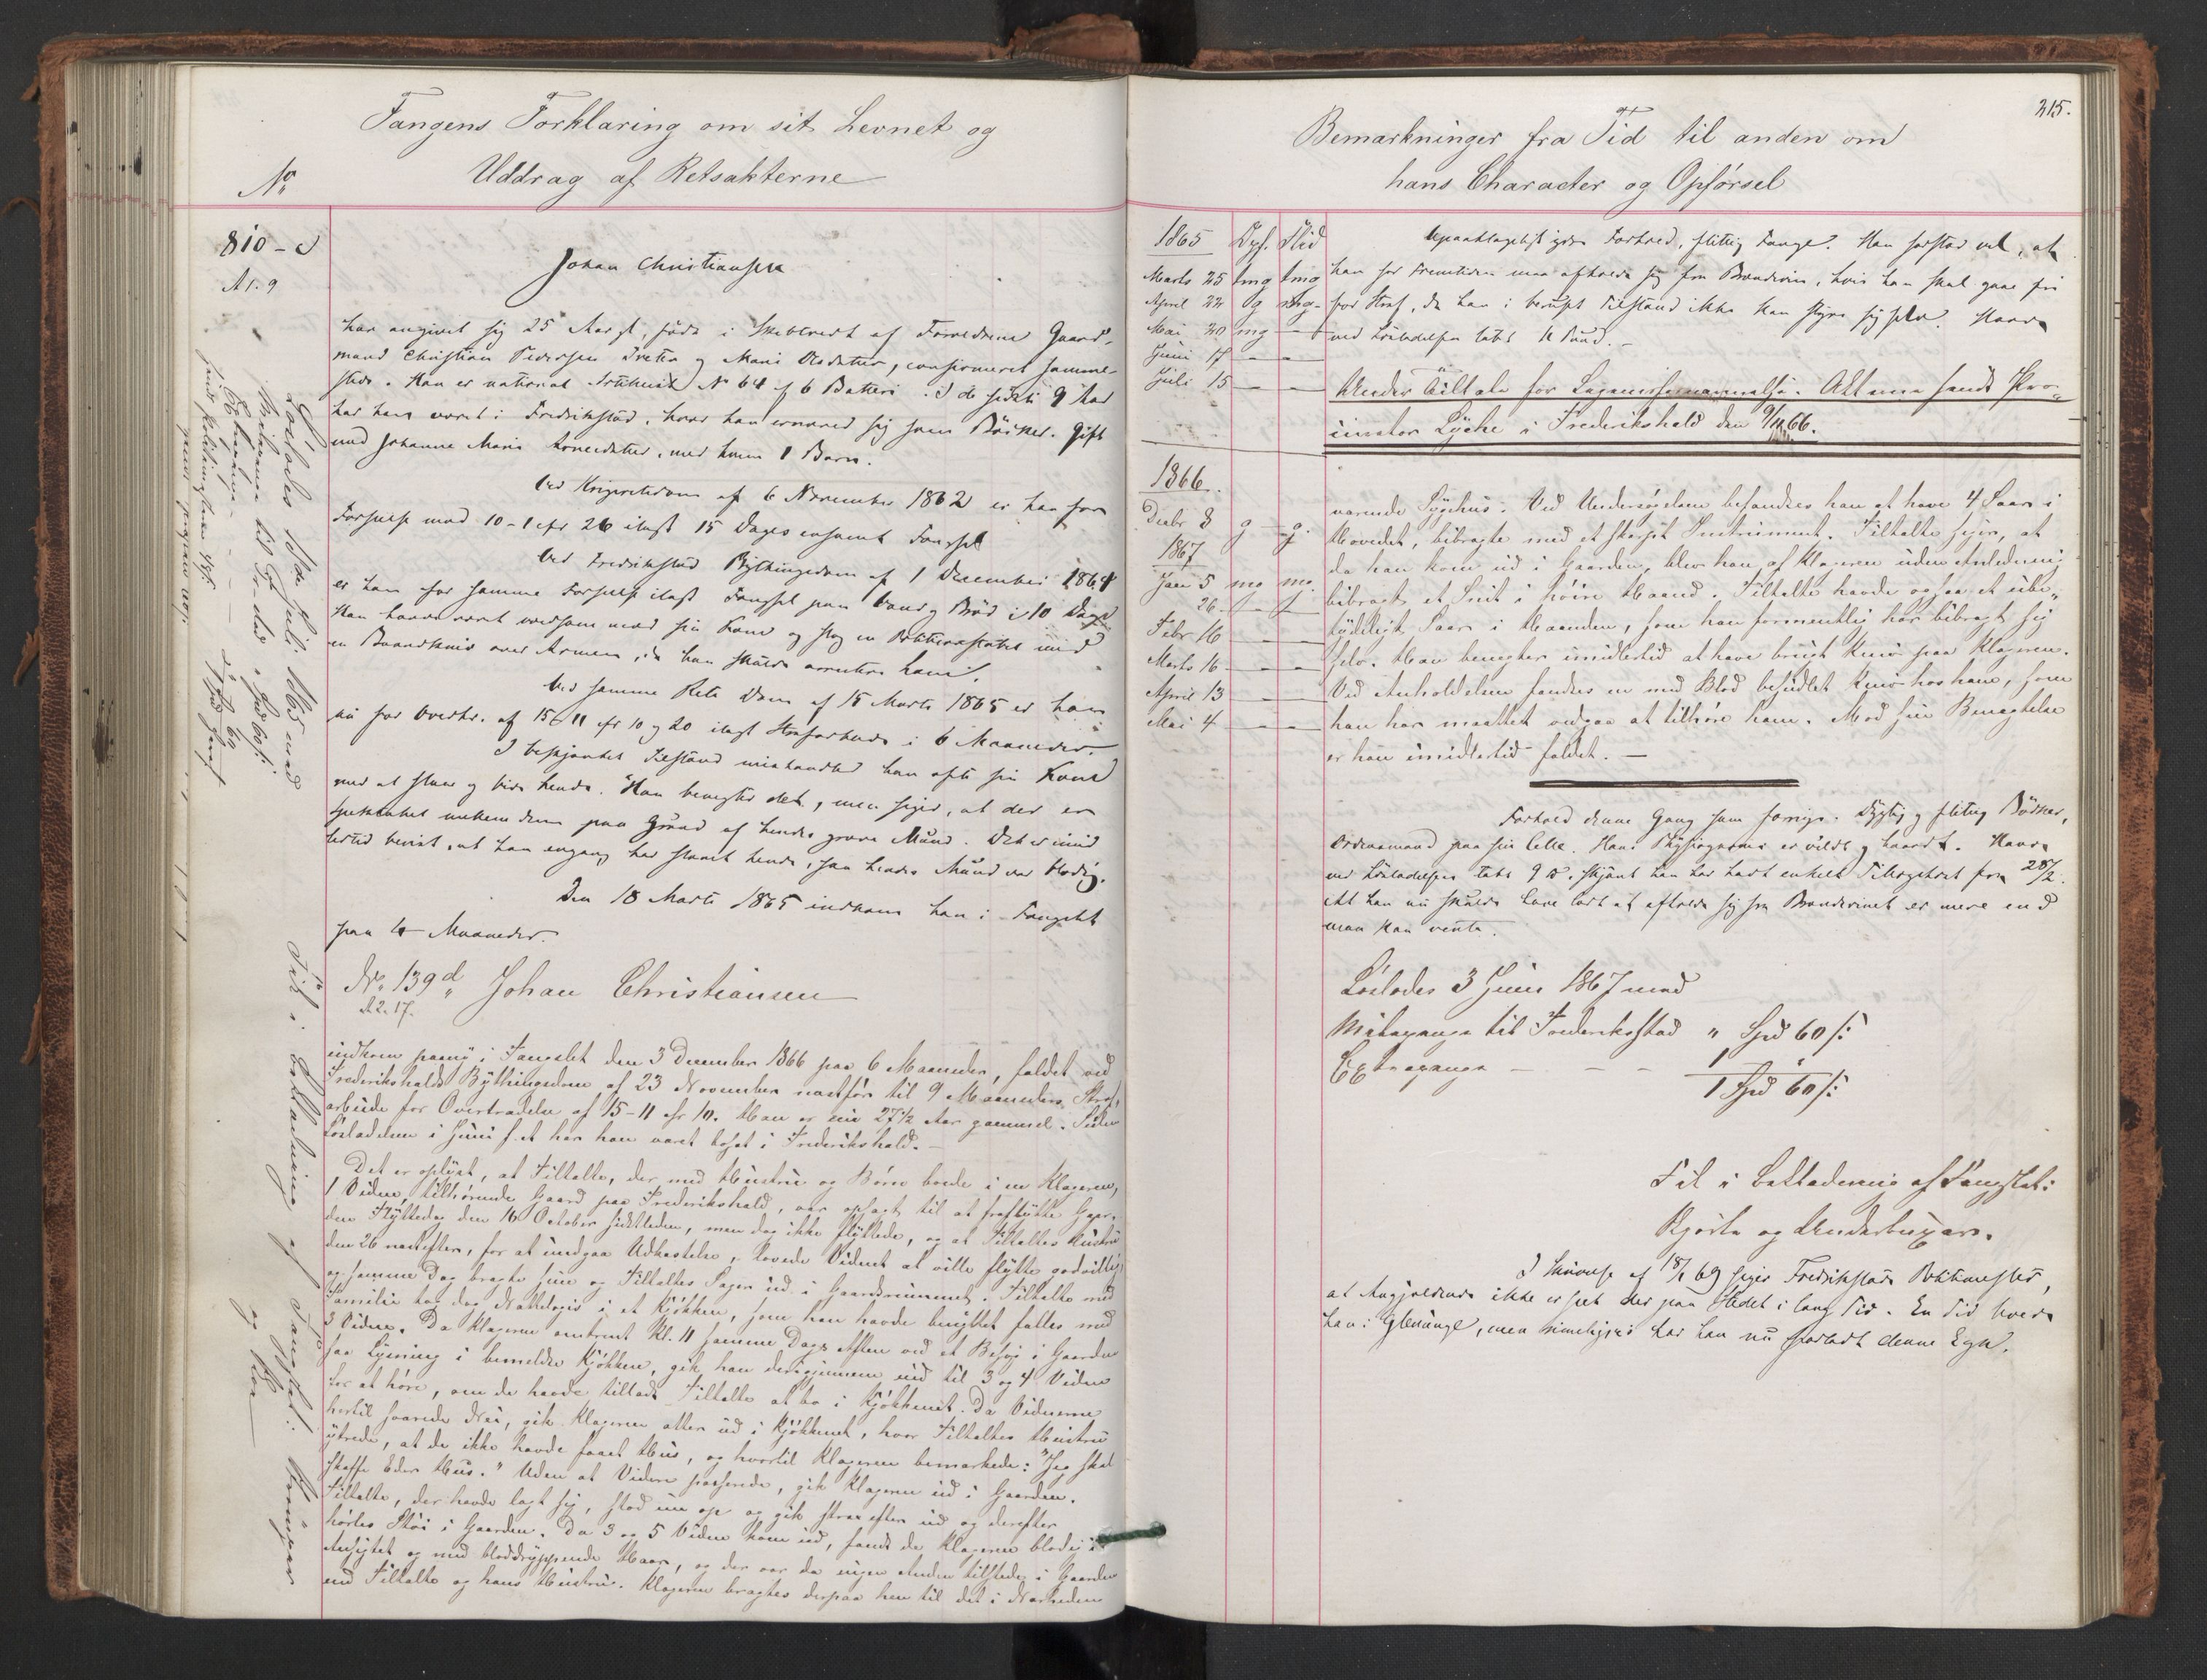 Fangens Forklaring om sit Levnet og
Uddrag af Retsakterne
No
810 - d
A 1. 9
Johan Christiansen
har angivet sig 25 Aar gl., født i Skebtvedt af Forældrene Gaard-
mand Christian Pedersen og Marie Olsdatter, confirmeret samme-
steds. Han er national Artillerist No 64 af 6 Batteri. I de sidste 9 Aar
har han været i Fredrikstad, hvor han ernæred sig som Bødker. Gift
med Johanne Marie, med hvem 1 Barn.
Ved Krigsretsdom af 6 November 1862 er han for
Forseelse mod 10-1 cfr 26 ilagt 15 Dages ensomt Fængsel
Ved Fredrikstad Bythingsdom af 1 December 1864
er han for samme Forseelse ilagt Fængsel paa Vand og Brød i 10 Dage
Han havde været voldsom mod sin Kone og slog en Politiconstabel med
en Brandkniv over Armen, da han skulde arrestere ham.
Ved samme Rets Dom af 18 Marts 1865 er han
nu for Overtr. af 15-11 cfr 10 og 20 ilagt Strafarbeide i 6 Maaneder.
I beskjænket Tilstand mishandled han ofte sin Kone
med at slaae og bide hende. Han benegter det, men siger, at der er
Spektakel mellem dem paa Grund af hendes grove Mund. Det er imid
lertid bevist, at han engang har slaaet hende, saa hendes Mund var blodig.
Den 18 Marts 1865 indkom han i Fængslet
paa 4 Maaneder.
No. 139 d Johan Christiansen
A 2. 17.
indkom paany i Fængslet den 3 December 1866 paa 6 Maaneder, fældet ved
Frederikshalds Bythingsdom af 23 November næstfør til 9 Maaneders Straf-
arbeide for Overtrædelse af 15-11 cfr 10. Han er nu 27½ Aar gammel. Siden
Løsladelsen i Juni f. A. har han været bosat i Frederikshald. —
Det er oplyst, at Tiltalte, der med Hustru og Børn boede i en Klageren,
1 Vidne, tilhørende Gaard paa Frederikshald, var opsagt til at fraflytte
den Flyttedag den 14 October sidstleden, men dog ikke flyttede, og at Tiltaltes Hustru
den 26 næstefter, for at undgaa Udkastelse, lovede Vidnet at ville flytte godvillig,
og samme Dag bragte hun og Tiltaltes Sager ud i Gaardsrummet. Tiltalte med
Familie tog dog Natlogis i et Kjøkken, som han havde benyttet fælles med
3 Vidne. Da Klageren omtrent Kl. 11 samme Dags Aften ved et Besøg i Gaarden
saa Lysning i bemeldte Kjøkken, gik han derigjennem ind til 3 og 4 Vidne
for at høre, om de havde tilladt Tiltalte at bo i Kjøkkenet. Da Vidnerne
hertil svarede Nei, gik Klageren atter ud i Kjøkkenet, hvor Tiltaltes Hustru
ytrede, at de ikke havde faaet Hus, og hvortil Klageren bemærkede: "Jeg skal
skaffe Eder Hus." Uden at Videre passerede, gik Klageren ud i Gaarden.
Tiltalte, der havde lagt sig, stod nu op og gik strax efter ud og derefter
hørtes Støi i Gaarden. Da 3 og 5 Vidne kom ud, fandt de Klageren blodig i
Ansigtet og med bloddryppende Haar, og der var da ingen Anden tilstede i Gaarden
end Tiltalte og hans Hustru. Klageren bragtes derpaa hen til det i Nærheden
Løslodes 18de Juli 1865 med
Reisepenge til Fr.stad
Extrapenge
Fik i Erstatning af Fængslet:
215.
Bemærkninger fra Tid til anden om
hans Character og Opførsel
1865 Opf. Flid
Marts 25 tmg tmg
April 22 g mg-
Mai 20 mg —
Juni 17 — —
Juli 15 — —
Upaaklageligt godt Forhold, flittig Fange. Han forstod vel, at
han for Fremtiden maa afholde sig fra Brændeviin, hvis han skal gaae fri
for Straf, da han i beruset Tilstand ikke kan styre sig selv. Havde
ved Løsladelsen tabt 11 Pund. —
Under Tiltale for Legemsfornærmelse. Akterne sendt Pro-
curator Lyche i Frederikshald den 9/11 66.
1866.
Decbr 8 g g.
1867
Jan 5 mg mg.
26 — —
Febr 16 — —
Marts 16 — —
April 13 — —
Mai 4 — —
værende Sygehus. Ved Undersøgelsen befandtes han at have 4 Saar i
Hovedet, bibragte med et skarpt Instrument. Tiltalte siger, at
da han kom ud i Gaarden, blev han af Klageren uden Anledning
bibragt et Snit i høire Haand. Tiltalte havde ogsaa et ube-
tydeligt Saar i Haanden, som han formentlig har bibragt sig
selv. Han benegter imidlertid at have brugt Kniv paa Klageren.
Ved Anholdelsen fandtes en med Blod besudlet Kniv hos ham, som
han har maattet vedgaa at tilhøre ham. Mod sin Benegtelse
er han imidlertid fældet. —
Forhold denne Gang som forrige. Dygtig og flittig Bødker,
Ordensmand paa sin Celle. Hans Physiognomi er vildt og haardt. Havde
ved Løsladelsen tabt 9 ℔, skjønt han har havt enkelt Tillægskost fra 28/2.
At han nu skulde have lært at afholde sig fra Brændevinet er mere end
man kan vente.
Løslodes 3 Juni 1867 med
Reisepenge til Frederiksstad " Spd 60 ß:
Extrapenge — — — 1 "
1 Spd 60 ß:
Fik i Løsladelsen af Fængslet:
Skjorte og Underbuxer.
I Skrivelse af 18/1 69 siger Fredrikstads Politimester,
at Angjældende ikke er seet der paa Stedet i lang Tid. En Tid boede
han i Glemminge, men rimeligvis har han nu forladt denne Egn.